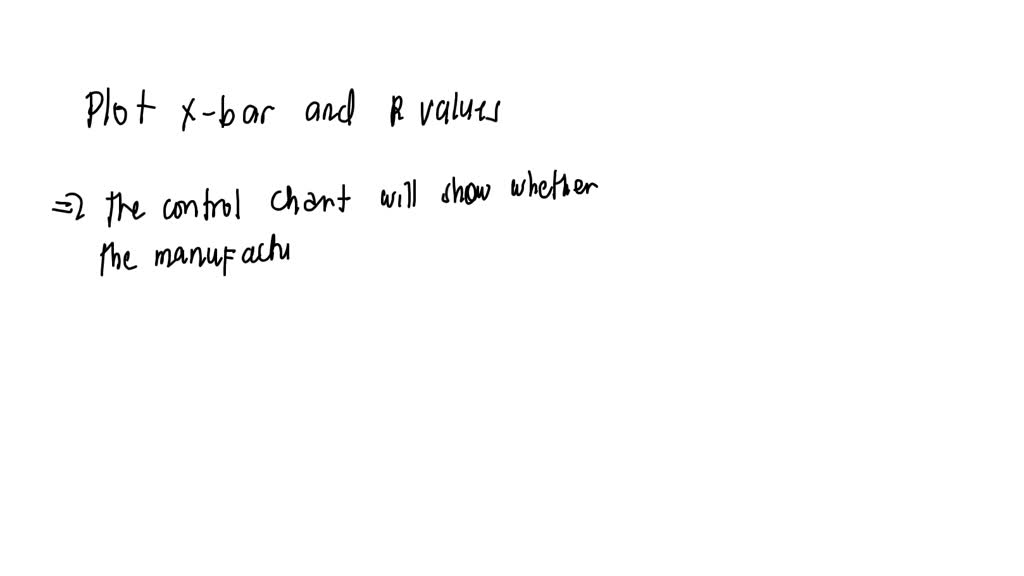 Plot x-bar and R values
⇒ the control chart will show whether
the manufactu